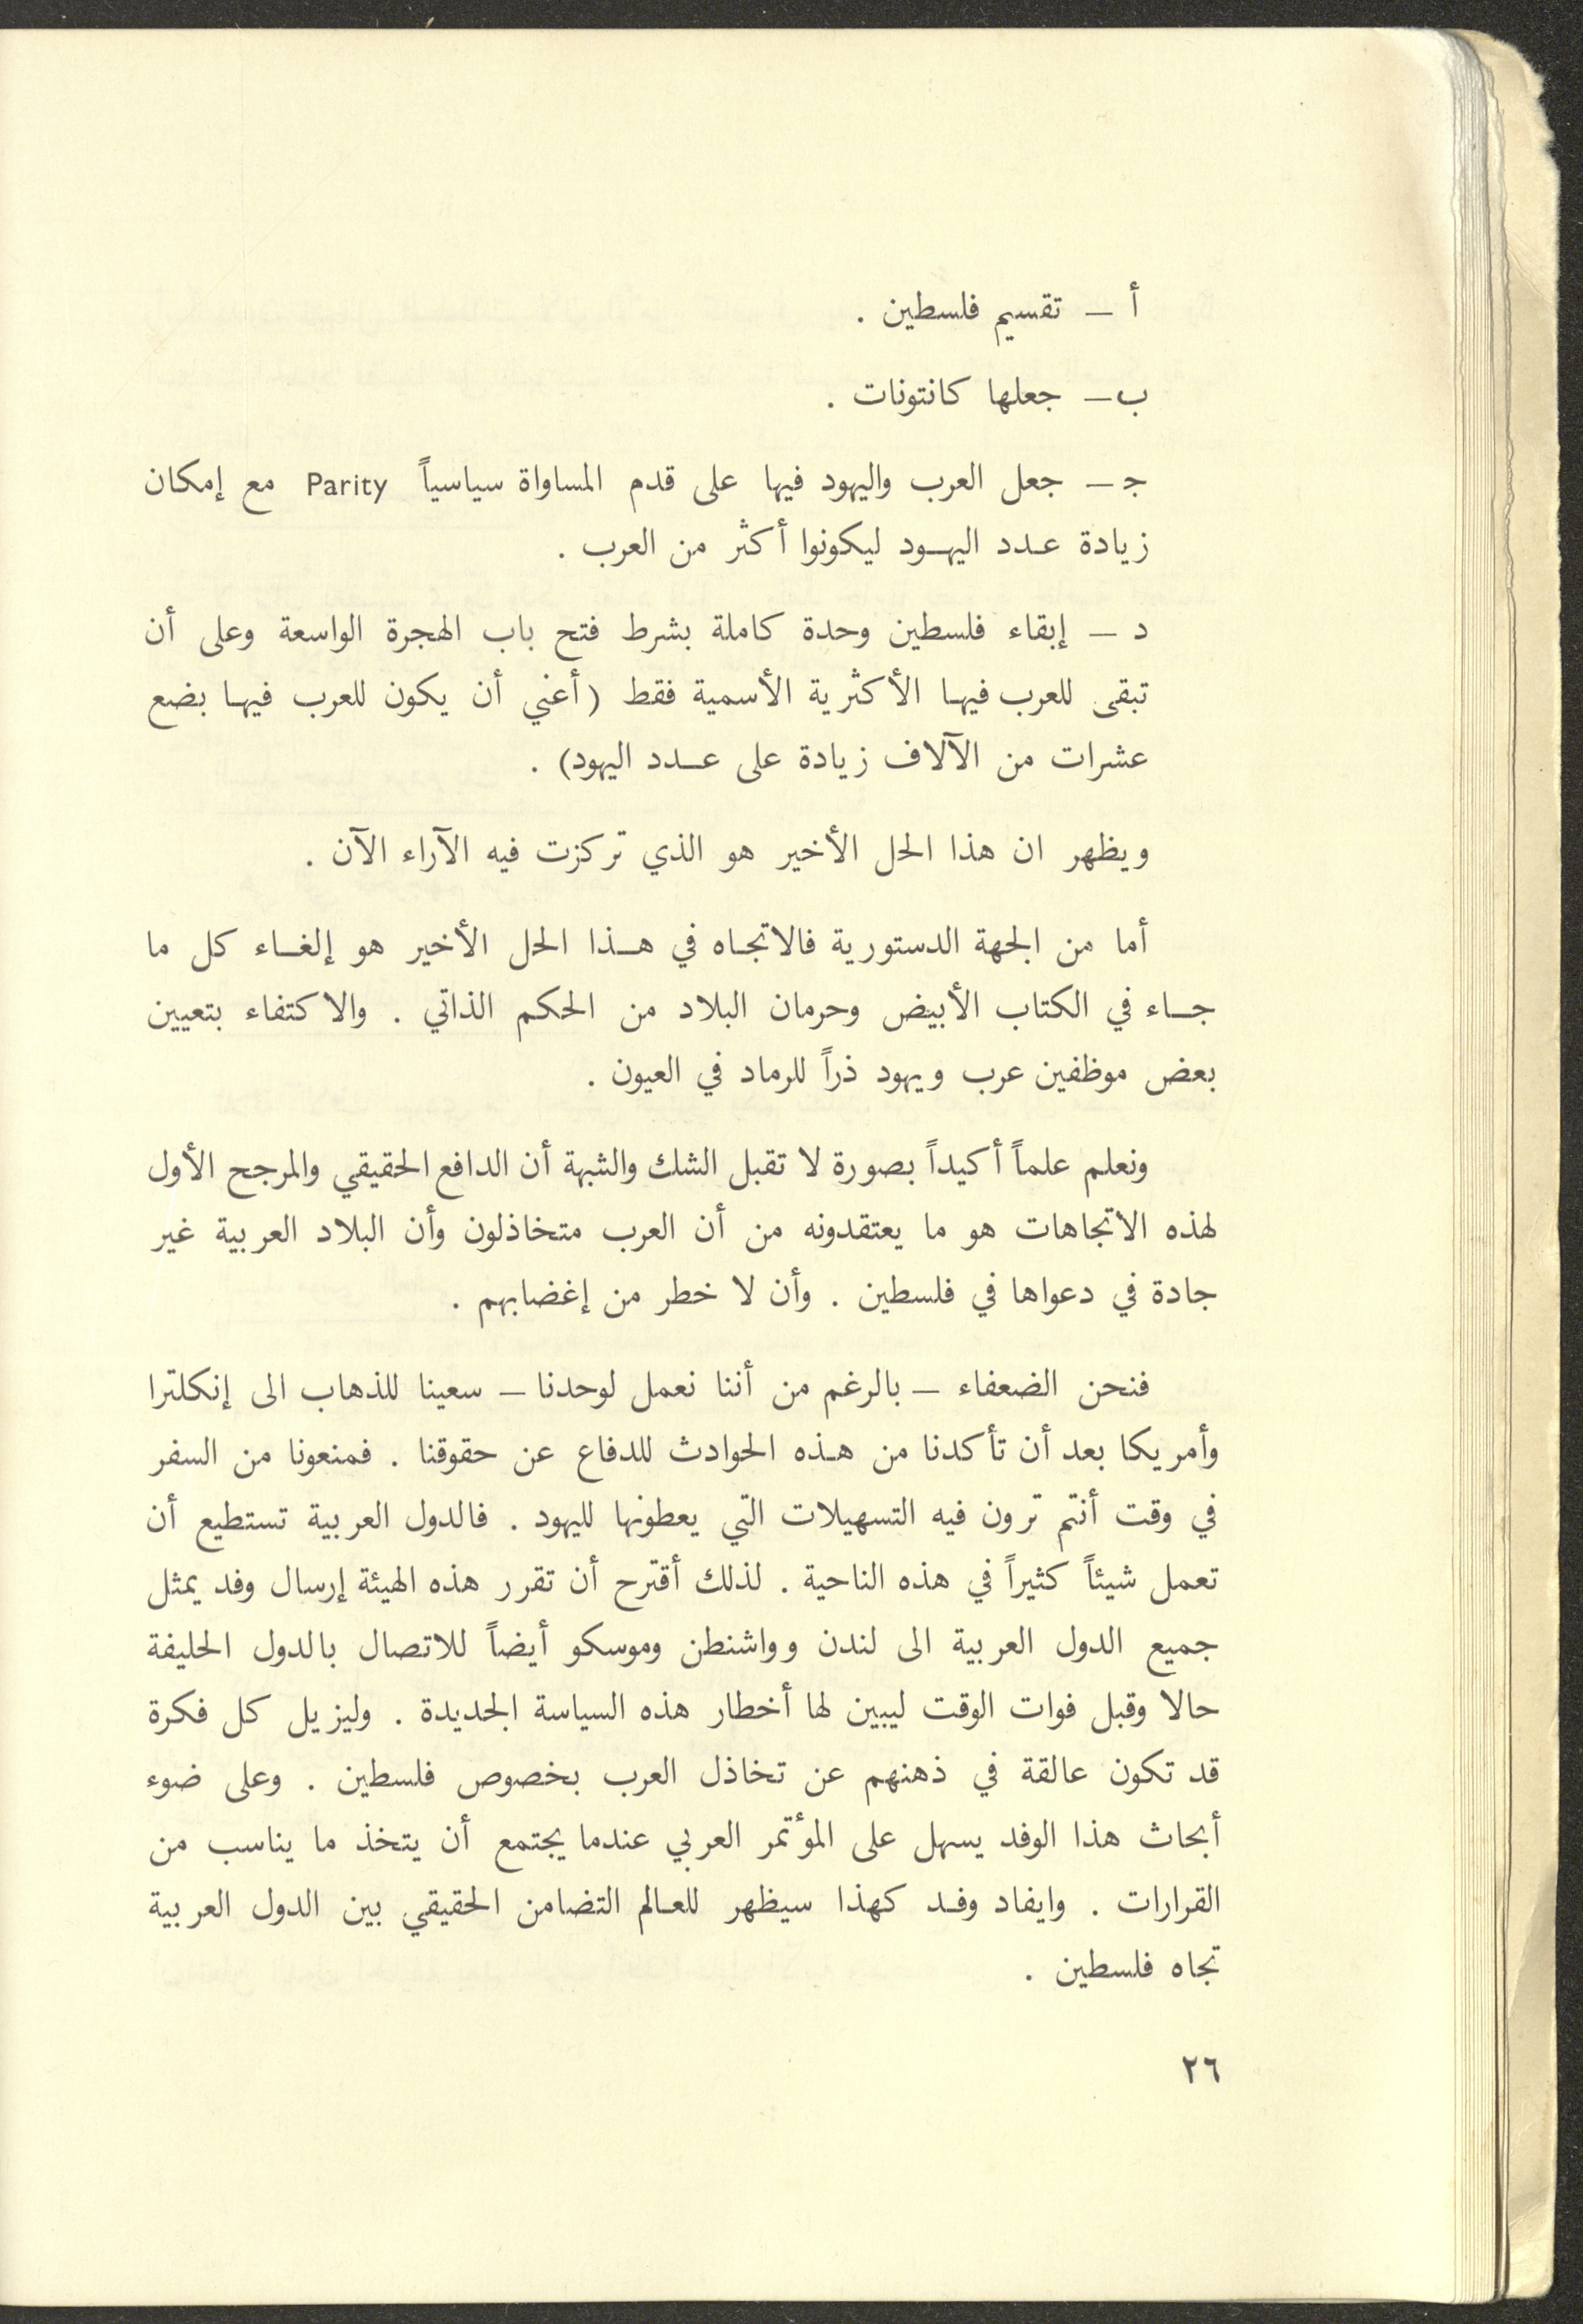 أ — تقسيم فلسطين .
ب — جعلها كانتونات .
ج — جعل العرب واليهود فيها على قدم المساواة سياسياً Parity مع إمكان
زيادة عدد اليهود ليكونوا أكثر من العرب .
د — إبقاء فلسطين وحدة كاملة بشرط فتح باب الهجرة الواسعة وعلى أن
تبقى للعرب فيها الأكثرية الأسمية فقط (أعني أن يكون للعرب فيها بضع
عشرات من الآلاف زيادة على عدد اليهود) .
ويظهر ان هذا الحل الأخير هو الذي تركزت فيه الآراء الآن .
أما من الجهة الدستورية فالاتجاه في هذا الحل الأخير هو إلغاء كل ما
جاء في الكتاب الأبيض وحرمان البلاد من الحكم الذاتي . والاكتفاء بتعيين
بعض موظفين عرب ويهود ذراً للرماد في العيون .
ونعلم علماً أكيداً بصورة لا تقبل الشك والشبهة أن الدافع الحقيقي والمرجح الأول
لهذه الاتجاهات هو ما يعتقدونه من أن العرب متخاذلون وأن البلاد العربية غير
جادة في دعواها في فلسطين . وأن لا خطر من إغضابهم .
فنحن الضعفاء — بالرغم من أننا نعمل لوحدنا — سعينا للذهاب الى إنكلترا
وأمريكا بعد أن تأكدنا من هذه الحوادث للدفاع عن حقوقنا . فمنعونا من السفر
في وقت أنتم ترون فيه التسهيلات التي يعطونها لليهود . فالدول العربية تستطيع أن
تعمل شيئاً كثيراً في هذه الناحية . لذلك أقترح أن تقرر هذه الهيئة إرسال وفد يمثل
جميع الدول العربية الى لندن وواشنطن وموسكو أيضاً للاتصال بالدول الحليفة
حالا وقبل فوات الوقت ليبين لها أخطار هذه السياسة الجديدة . وليزيل كل فكرة
قد تكون عالقة في ذهنهم عن تخاذل العرب بخصوص فلسطين . وعلى ضوء
أبحاث هذا الوفد يسهل على المؤتمر العربي عندما يجتمع أن يتخذ ما يناسب من
القرارات . وايفاد وفد كهذا سيظهر للعالم التضامن الحقيقي بين الدول العربية
تجاه فلسطين .
٢٦